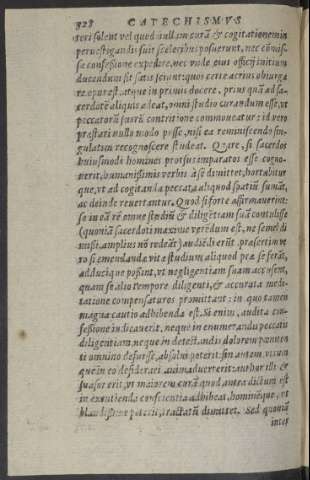 328 CATECHISMVS
teri solent vel quod nullam curã & cogitationem in
peruestigandis suis sceleribus posuerunt, nec cõmis-
sa confessione expedire, nec vnde eius officij initium
ducendum sit satis sciant: quos certe acrius obiurga
re opus est, atque in primis docere, prius quàm ad sa-
cerdotẽ aliquis adeat, omni studio curandum esse, vt
peccatorũ suorũ contritione commoueatur: id vero
præstari nullo modo posse, nisi ea reminiscendo sin-
gulatim recognoscere studeat. Quare, si sacerdos
huiusmodi homines prorsus imparatos esse cogno-
uerit, humanissimis verbis à se dimittet, hortabitur
que, vt ad cogitanda peccata aliquod spatiũ sumãt,
ac deinde reuertantur. Quod si forte affirmauerint,
se in eã rẽ omne studiũ & diligẽtiam suã contulisse
(quoniã sacerdoti maxime verẽdum est, ne semel di
missi, amplius nõ redeãt) audiẽdi erũt præsertim ve
ro si emendandæ vitæ studium aliquod præ se ferãt,
adducique possint, vt negligentiam suam accusent,
quam se alio tempore diligenti, & accurata medi-
tatione compensaturos promittant: in quo tamen
magna cautio adhibenda est. Si enim, audita con-
fessione iudicauerit, neque in enumerandis peccatis
diligentiam, neque in detestandis dolorem pœniten
ti omnino defuisse, absolui poterit: sin autem, vtrun
que in eo desiderari animaduerterit: author illi &
suasor erit, vt maiorem curã quod antea dictum est
in excutienda conscientia adhibeat, hominẽque, vt
blandissime poterit, tractatũ dimittet. Sed quoniã
inter